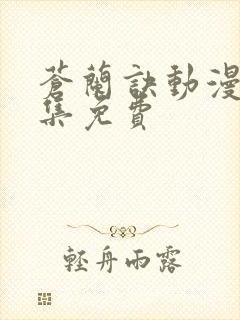 蒼蘭訣動漫
集免費
輕舟雨露